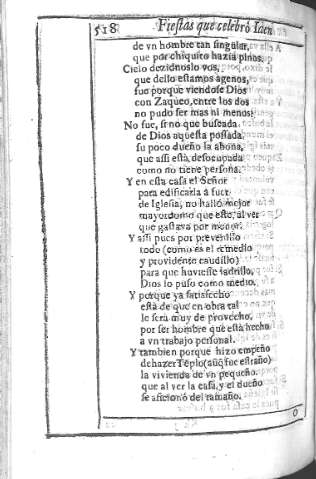 518 Fiestas que celebrò Iaen
de vn hombre tan singular,
que por chiquito hazia pinos.
Cielo dezidnoslo vos,
que dello estamos agenos,
fue porque viendose Dios
con Zaqueo, entre los dos
no pudo ser mas ni menos:
No fue, si no que buscada
de Dios aquesta possada,
su poco dueño la abona,
que assi està desocupada
como no tiene persona.
Y en esta casa el Señor
para edificarla à fuer
de Iglesia, no hallò mejor
mayordomo que este, al ver
que gastava por menor.
Y assi pues por prevenillo
todo (como es el remedio
y providente caudillo)
para que huviesse ladrillo,
Dios lo puso como medio.
Y porque ya satisfecho
està de que en obra tal
le serà muy de provecho,
por ser hombre que està hecho
a vn trabajo personal.
Y tambien porque hizo empeño
de hazer Tẽplo (aũq̃ fue estraño)
la vivienda de vn pequeño.
que al ver la casa, y el dueño
se aficionò del tamaño.
O